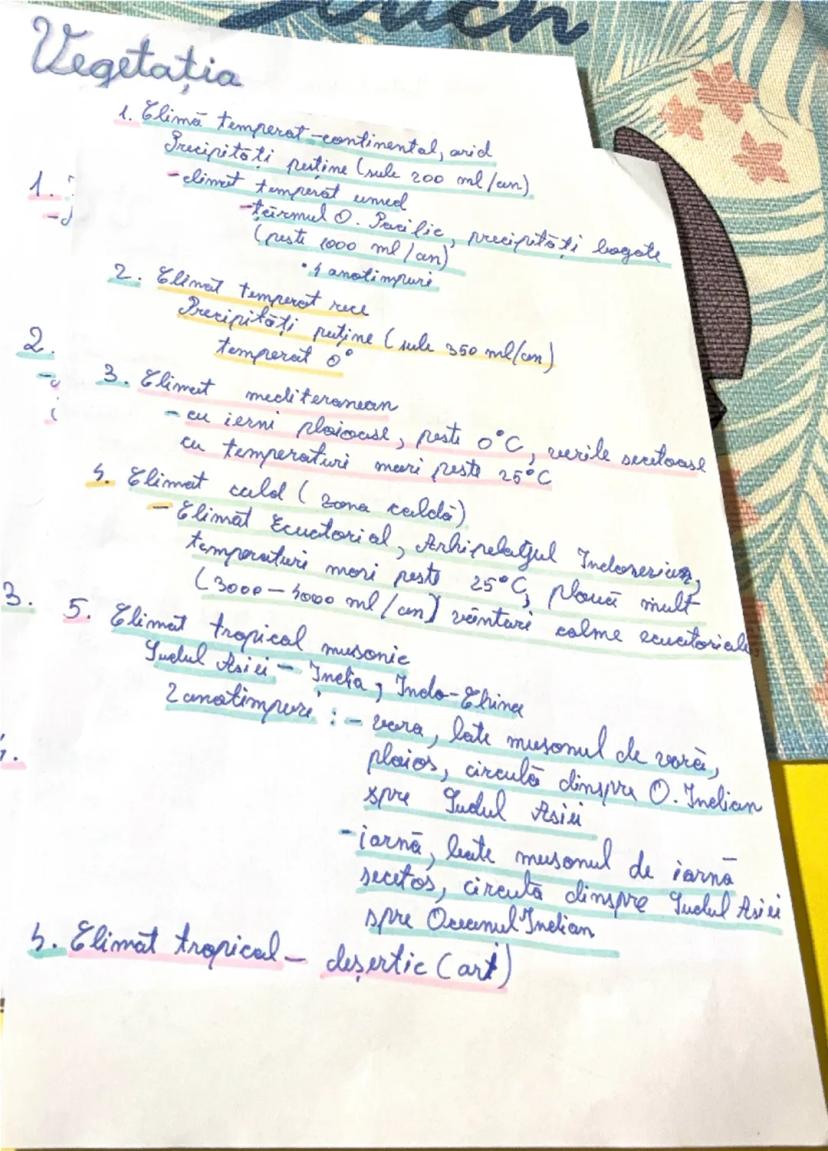 Vegetația
1. Climă temperat-continental, arid
Precipități puține (sub 200 ml/an)
1.
- climat temperat umed
- țărmul O. Pacific, precipități bogate
(peste 1000 ml/an)
• 4 anotimpuri
2. Climat temperat rece
Precipități puține (sub 350 ml/an)
temperat 0°
2.
3. Climat mediteranean
- cu ierni ploioase, peste 0°C, verile secetoase
cu temperaturi mari peste 25°C
4. Climat cald (zona caldă)
- Climat Ecuatorial, Arhipelagul Indonezian,
temperaturi mari peste 25°C, plouă mult
(3000-4000 ml/an) vânturi calme ecuatoriale
3.
5. Climat tropical musonic
Sudul Asiei - India, Indo-China
2 anotimpuri: - vara, bate musonul de vară,
ploios, circulă dinspre O. Indian
spre Sudul Asiei
- iarnă, bate musonul de iarnă
secetos, circulă dinspre Sudul Asiei
spre Oceanul Indian
5. Climat tropical - deșertic (arid)